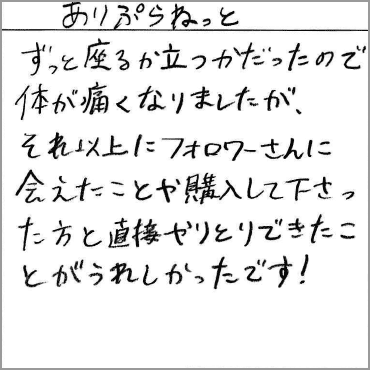 ありぷらねっと
ずっと座るか立つかだったので
体が痛くなりましたが、
それ以上にフォロワーさんに
会えたことや購入して下さっ
た方と直接やりとりできたこ
とがうれしかったです!